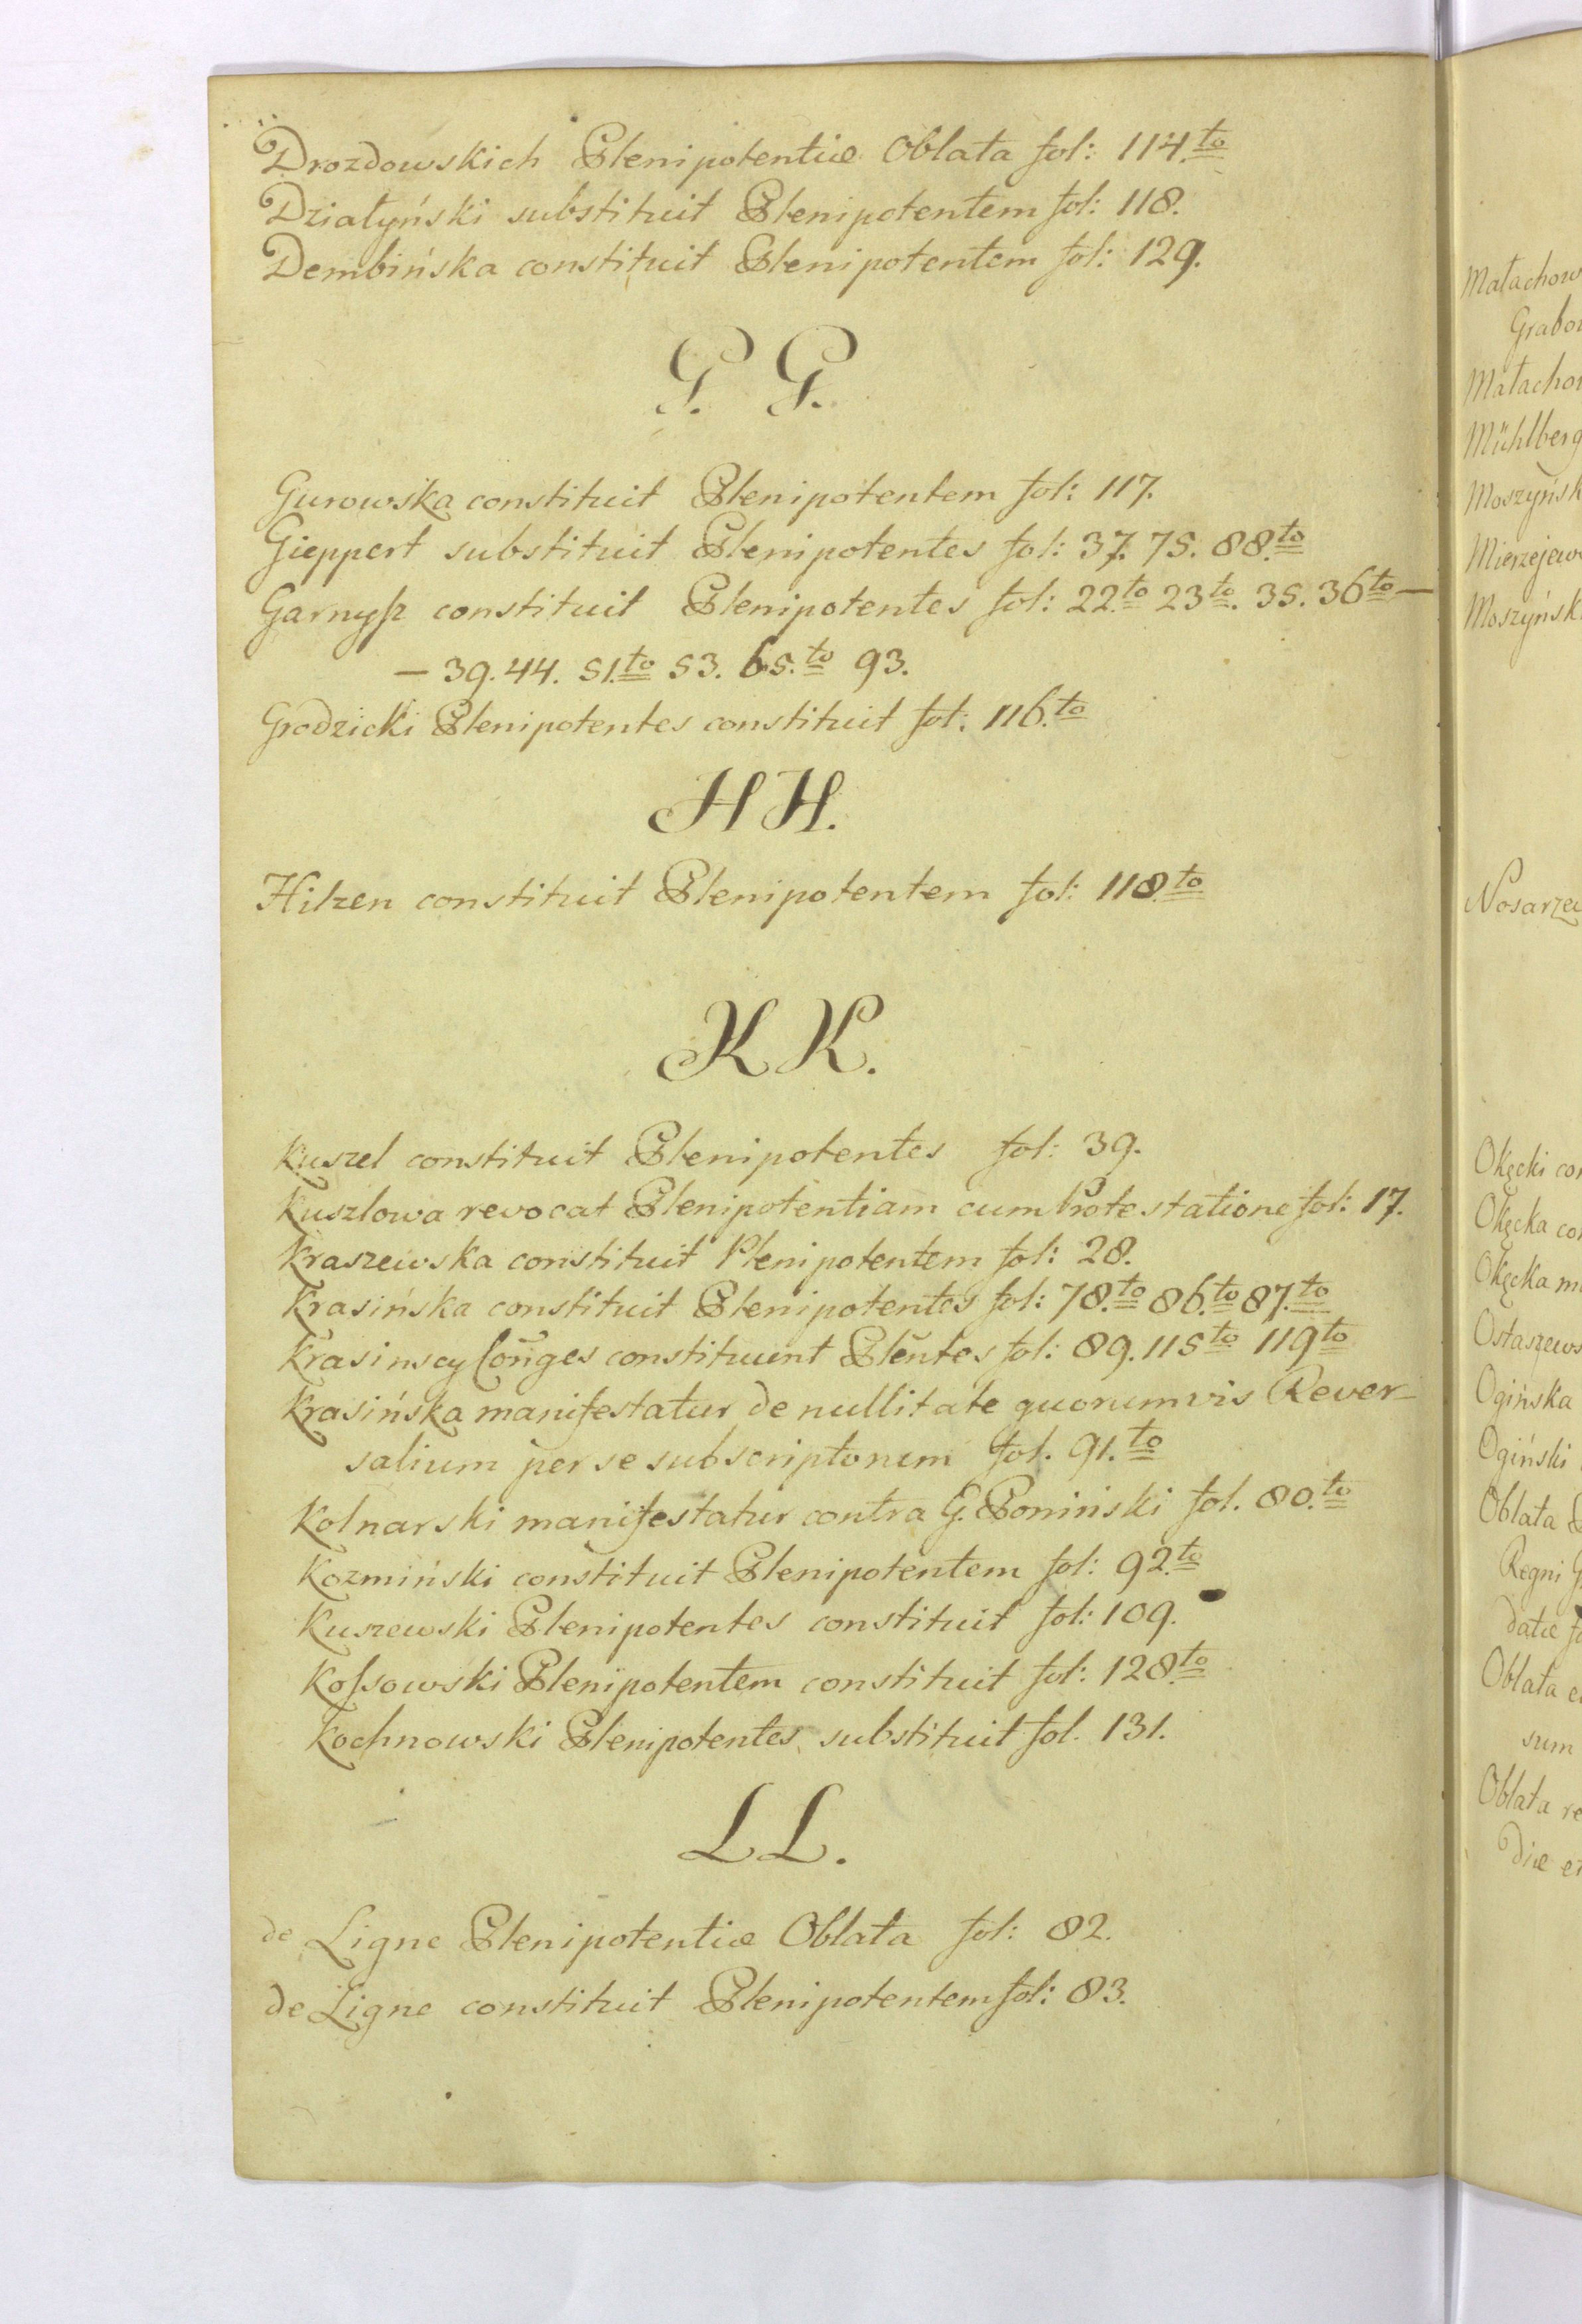 Drozdowskich Plenipotentiæ Oblata fol: 114.to
Działyński substituit Plenipotentem fol: 118.
Dembińska constituit Plenipotentem fol: 129.
G. G.
Gurowska constituit Plenipotentem fol: 117.
Gieppert substituit Plenipotentes fol: 37. 75. 88.to
Garnysz constituit Plenipotentes fol: 22.to 23to. 35. 36to —
— 39. 44. 51.to 53. 65.to 93.
Grodzicki Plenipotentes constituit fol: 116.to
H H.
Hilzen constituit Plenipotentem fol: 118.to
K K.
Kuszel constituit Plenipotentes fol: 39.
Kuszlowa revocat Plenipotentiam cum Protestatione fol: 17.
Kraszewska constituit Plenipotentem fol: 28.
Krasińska constituit Plenipotentes fol: 78.to 86.to 87.to
Krasinscy Cõnges constituunt Plẽntes fol: 89. 115to 119to
Krasińska manifestatur de nullitate quorumvis Rever-
salium per se subscriptorum fol. 91.to
Kolnarski manifestatur contra G. Poniński fol. 80.to
Kozmiński constituit Plenipotentem fol: 92.to
Kuszewski Plenipotentes constituit fol: 109.
Kossowski Plenipotentem constituit fol: 128.to
Kochnowski Plenipotentes substituit fol. 131.
L L.
de Ligne Plenipotentiæ Oblata fol: 82.
de Ligne constituit Plenipotentem fol: 83.
Małachow
Grabo
Małacho
Mühlberg
Moszyńsk
Mierzejew
Moszyńsk
Nosarzew
Okęcki co
Okęcka co
Okęcka m
Ostaszews
Ogińska
Ogiński
Oblata
Regni
datæ
Oblata
sum
Oblata re
diæ